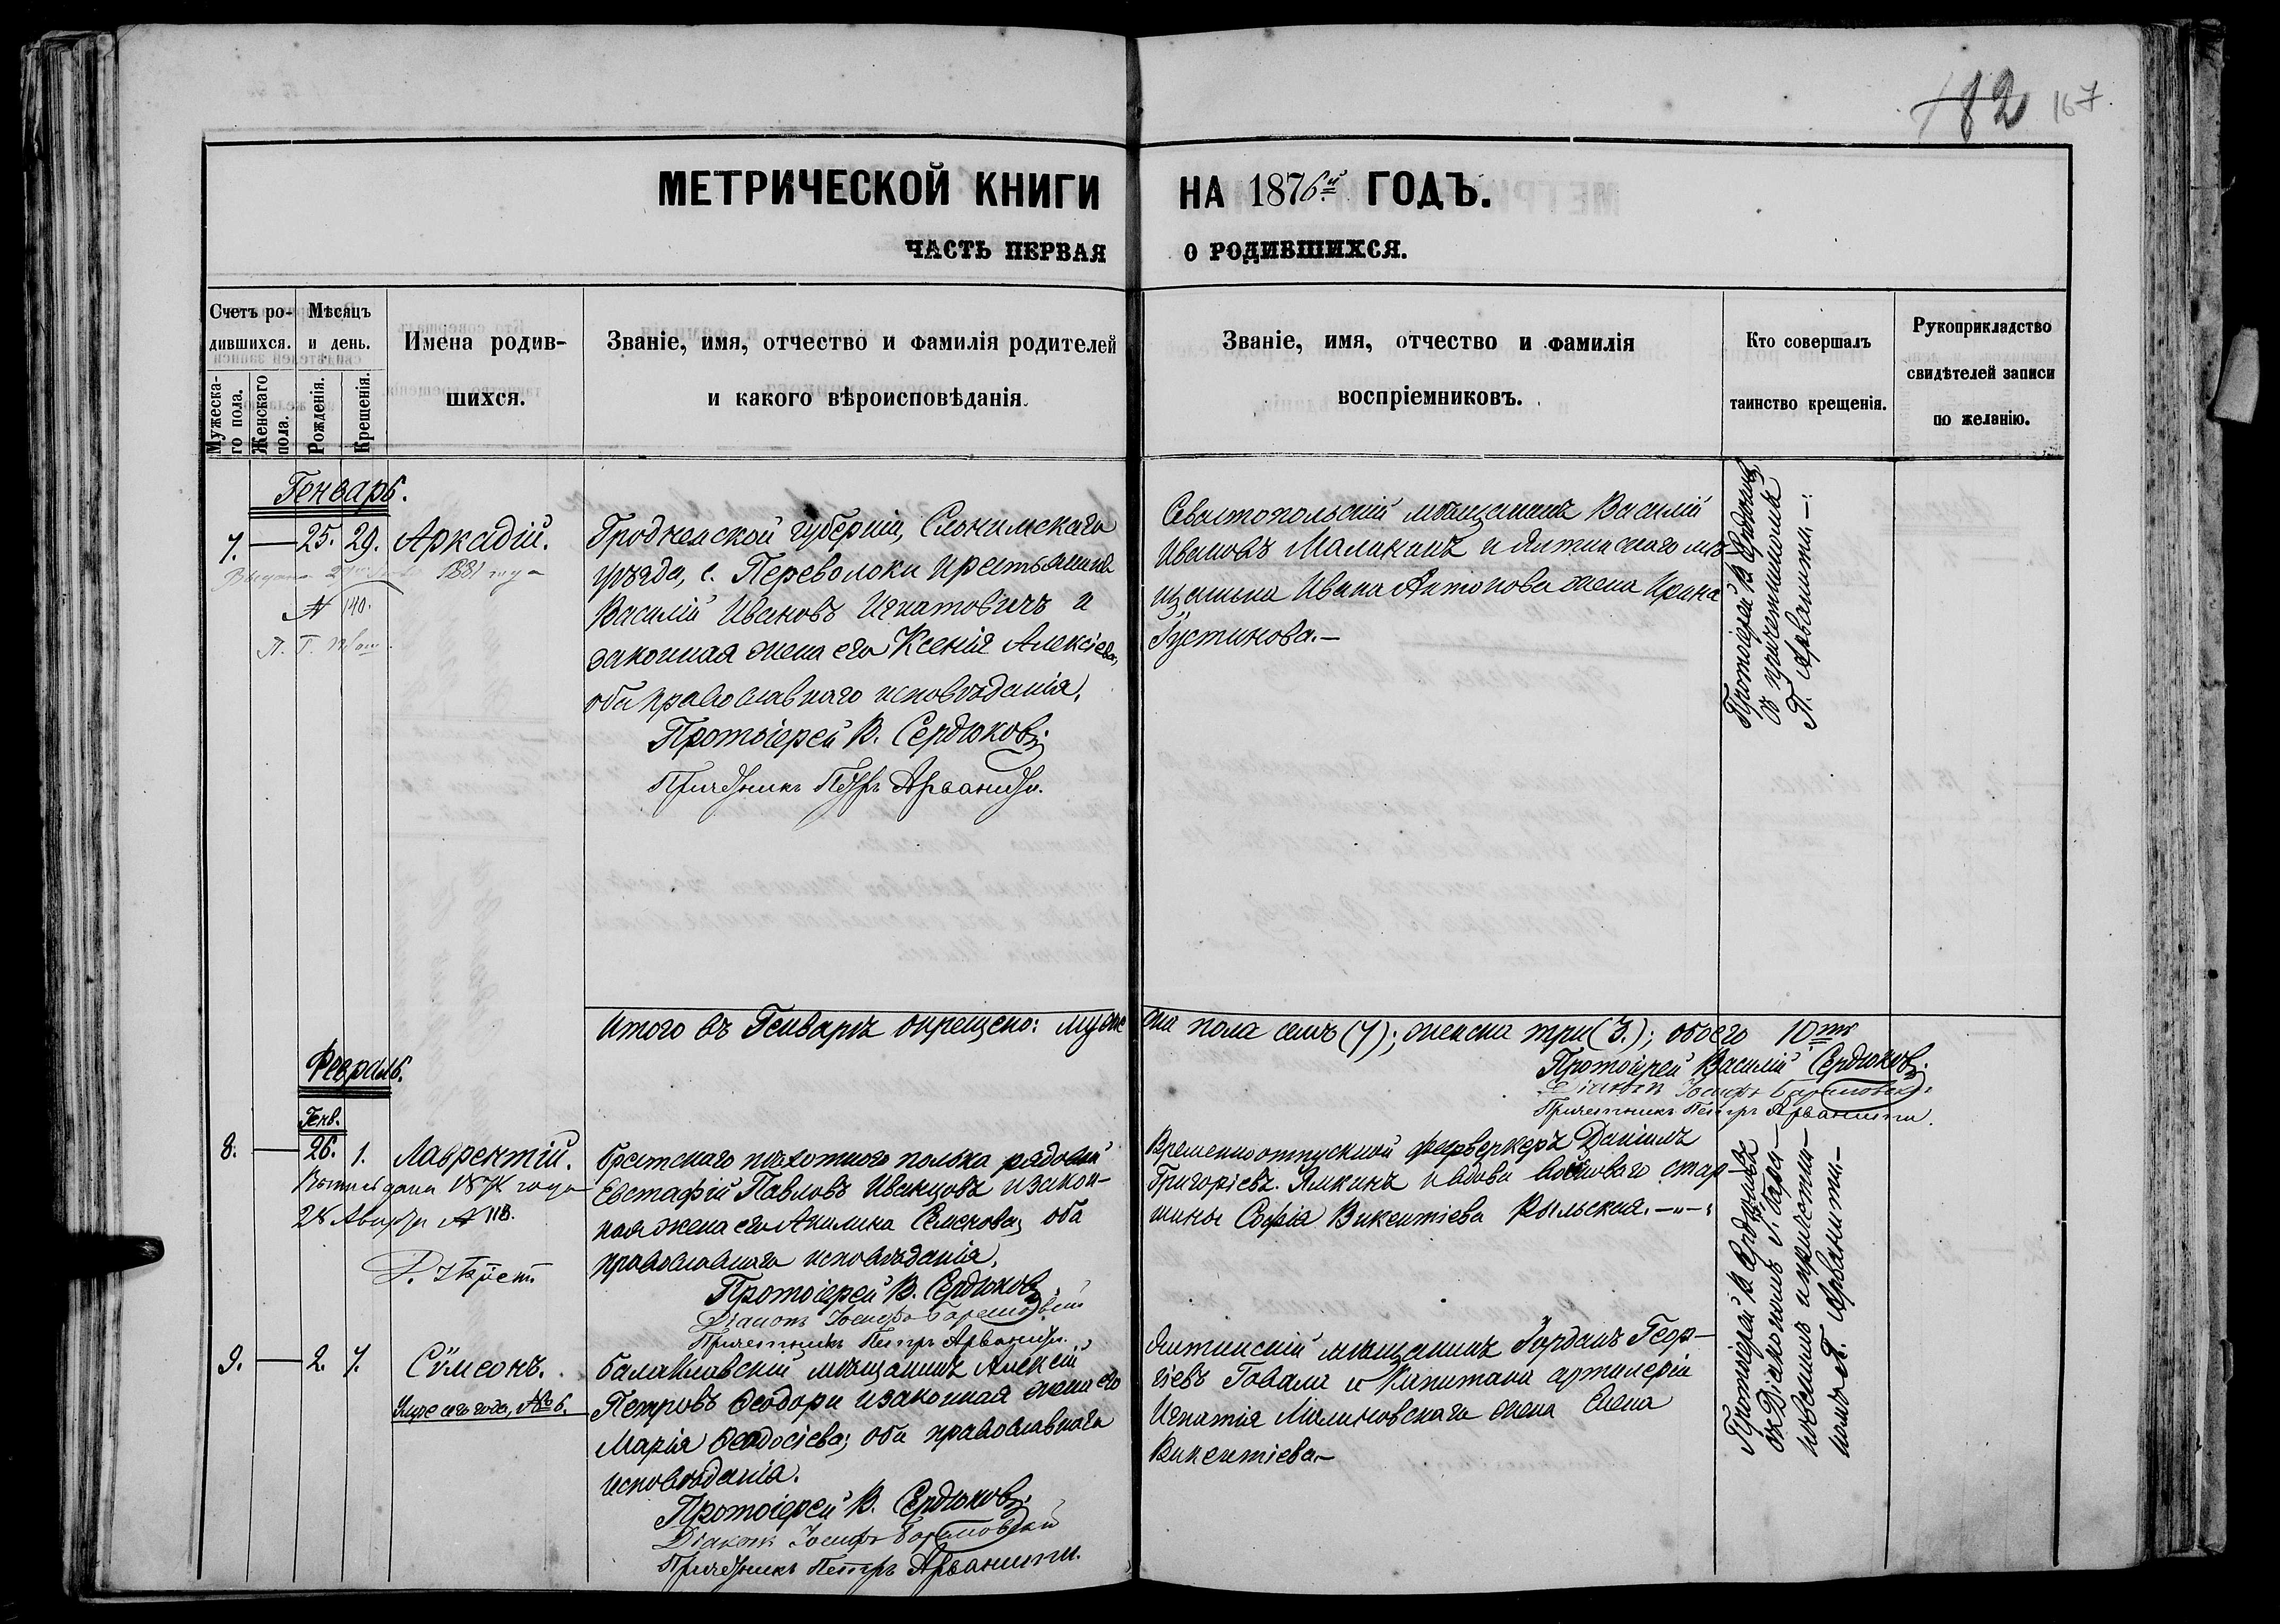 182 167.
МЕТРИЧЕСКОЙ КНИГИ НА 1876й ГОДЪ.
ЧАСТЬ ПЕРВАЯ О РОДИВШИХСЯ.
Счетъ ро-
дившихся.
Мужеска-
го пола.
Женскаго
пола.
Мѣсяцъ
и день.
Рожденія.
Крещенія.
Имена родив-
шихся.
Званіе, имя, отчество и фамилія родителей
и какого вѣроисповѣданія.
Званіе, имя, отчество и фамилія
воспріемниковъ.
Кто совершалъ
таинство крещенія.
Рукоприкладство
свидѣтелей записи
по желанію.
Генварь.
7. — 25. 29. Аркадій.
1881 года
№ 140.
Гродненской губерніи, Слонимскаго
уѣзда, с. Переволоки крестьянинъ
Василій Ивановъ Игнатовичъ и
законная жена его Ксенія Алексіева,
оба православнаго исповѣданія.
Протоіерей В. Сердюковъ.
Причетникъ Петръ Арванити.
Севастопольскій мѣщанинъ Василій
Ивановъ Малыкинъ и Ялтинскаго мѣ-
щанина Ивана Антонова жена Ирина
Густинова.—
Протоіерей В. Сердюковъ
съ причетникомъ
П. Арванити.—
Итого въ Генварѣ окрещено: мужеска пола семь (7); женска три (3.); обоего 10ть
Протоіерей Василій Сердюковъ.
Діаконъ Іосифъ Барановскій
Причетникъ Петръ Арванити.
Февраль.
Генв.
8. — 26. 1. Лаврентій.
года
№ 118.
Брестскаго пѣхотнаго полька рядовый
Евстафій Павловъ Иванцовъ и закон-
ная жена его Акилина Семенова, оба
православнаго исповѣданія.
Протоіерей В. Сердюковъ.
Діаконъ Іосифъ Барановскій
Причетникъ Петръ Арванити.
Временноотпускной фейерверкеръ Даніилъ
Григоріевъ Ямкинъ и вдова войскового стар-
шины Софія Викентіева Рыльская.—"—
9. — 2. 7. Сѵмеонъ.
Умре сего года, № 6.
Балаклавскій мѣщанинъ Алексій
Петровъ Ѳеодори и законная жена его
Марія Ѳеодосіева; оба православнаго
исповѣданія.
Протоіерей В. Сердюковъ.
Діаконъ Іосифъ Барановскій
Причетникъ Петръ Арванити.
Ялтинскій мѣщанинъ Іорданъ Геор-
гіевъ Говали и Капитана артилеріи
Игнатія Малиновскаго жена Елена
Викентіева.—
Протоіерей В. Сердюковъ
съ Діакономъ І. Бара-
новскимъ и причетни-
комъ П. Арванити.—